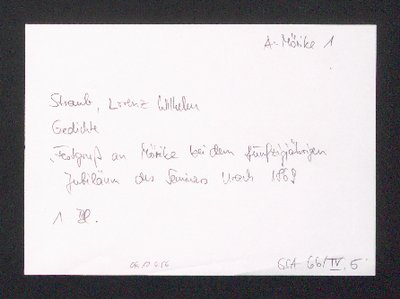 A: Mörike 1
Straub, Lorenz Wilhelm
Gedichte
"Festgruß an Mörike bei dem fünfzigjährigen
Jubiläum des Seminars Urach 1868
1 Bl.
GSA 66/IV, 5